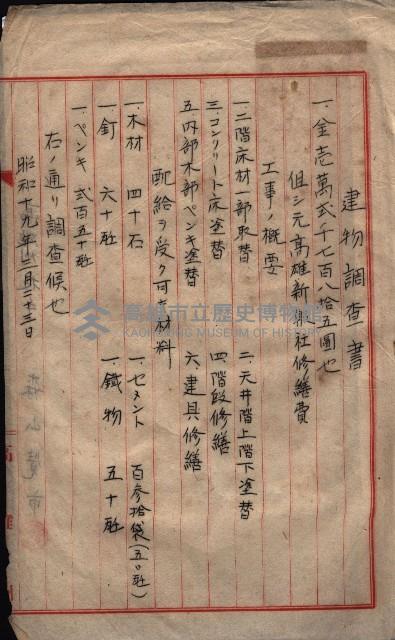 建物調査書
一、金壱萬弐千七百八拾五圓也
但シ元高雄新報社修繕費
工事ノ概要
一、二階床材一部取替 二、天井階上階下塗替
三、コンクリート床塗替 四、階段修繕
五、内部木部ペンキ塗替 六、建具修繕
配給ヲ受ク可キ材料
一、木材 四十石 一、セメント 百参拾袋(五〇瓩)
一、釘 六十瓩 一、鐵物 五十瓩
一、ペンキ 弐百五十瓩
右ノ通リ調査候也
昭和十九年三月二十三日
高雄市立歷史博物館
KAOHSIUNG MUSEUM OF HISTORY